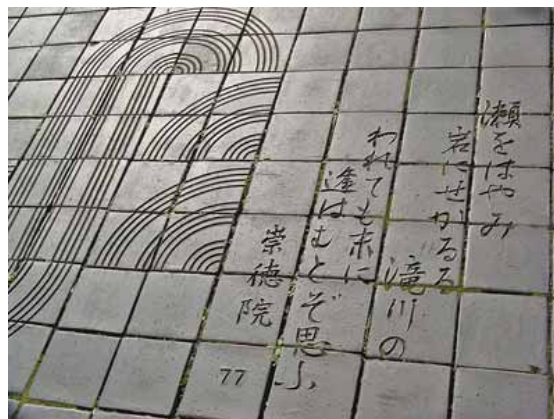 瀬をはやみ
岩にせかるる
滝川の
われても末に
逢はむとぞ思ふ
崇徳院
77